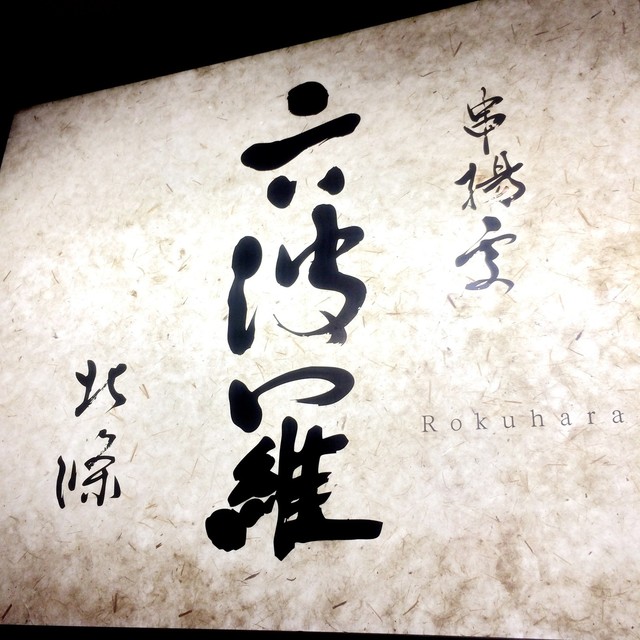 串揚處
六波羅
Rokuhara
北條